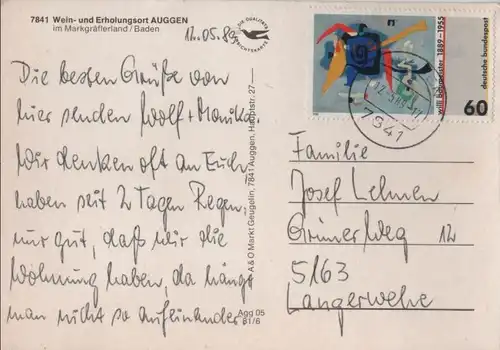 7841 Wein- und Erholungsort AUGGEN
im Markgräflerland / Baden
12.05.89
Die besten Grüße von
hier senden Wolf + Monika.
Wir denken oft an Euch,
haben seit 2 Tagen Regen,
nur gut, daß wir die
Wohnung haben, da hängt
man nicht so aufeinander
A & O Markt Geugelin, 7841 Auggen, Hauptstr. 27
Agg 05
81/6
willi baumeister 1889-1955
deutsche bundespost
60
7841
Familie
Josef Lehnen
Grüner Weg 12
5163
Langerwehe